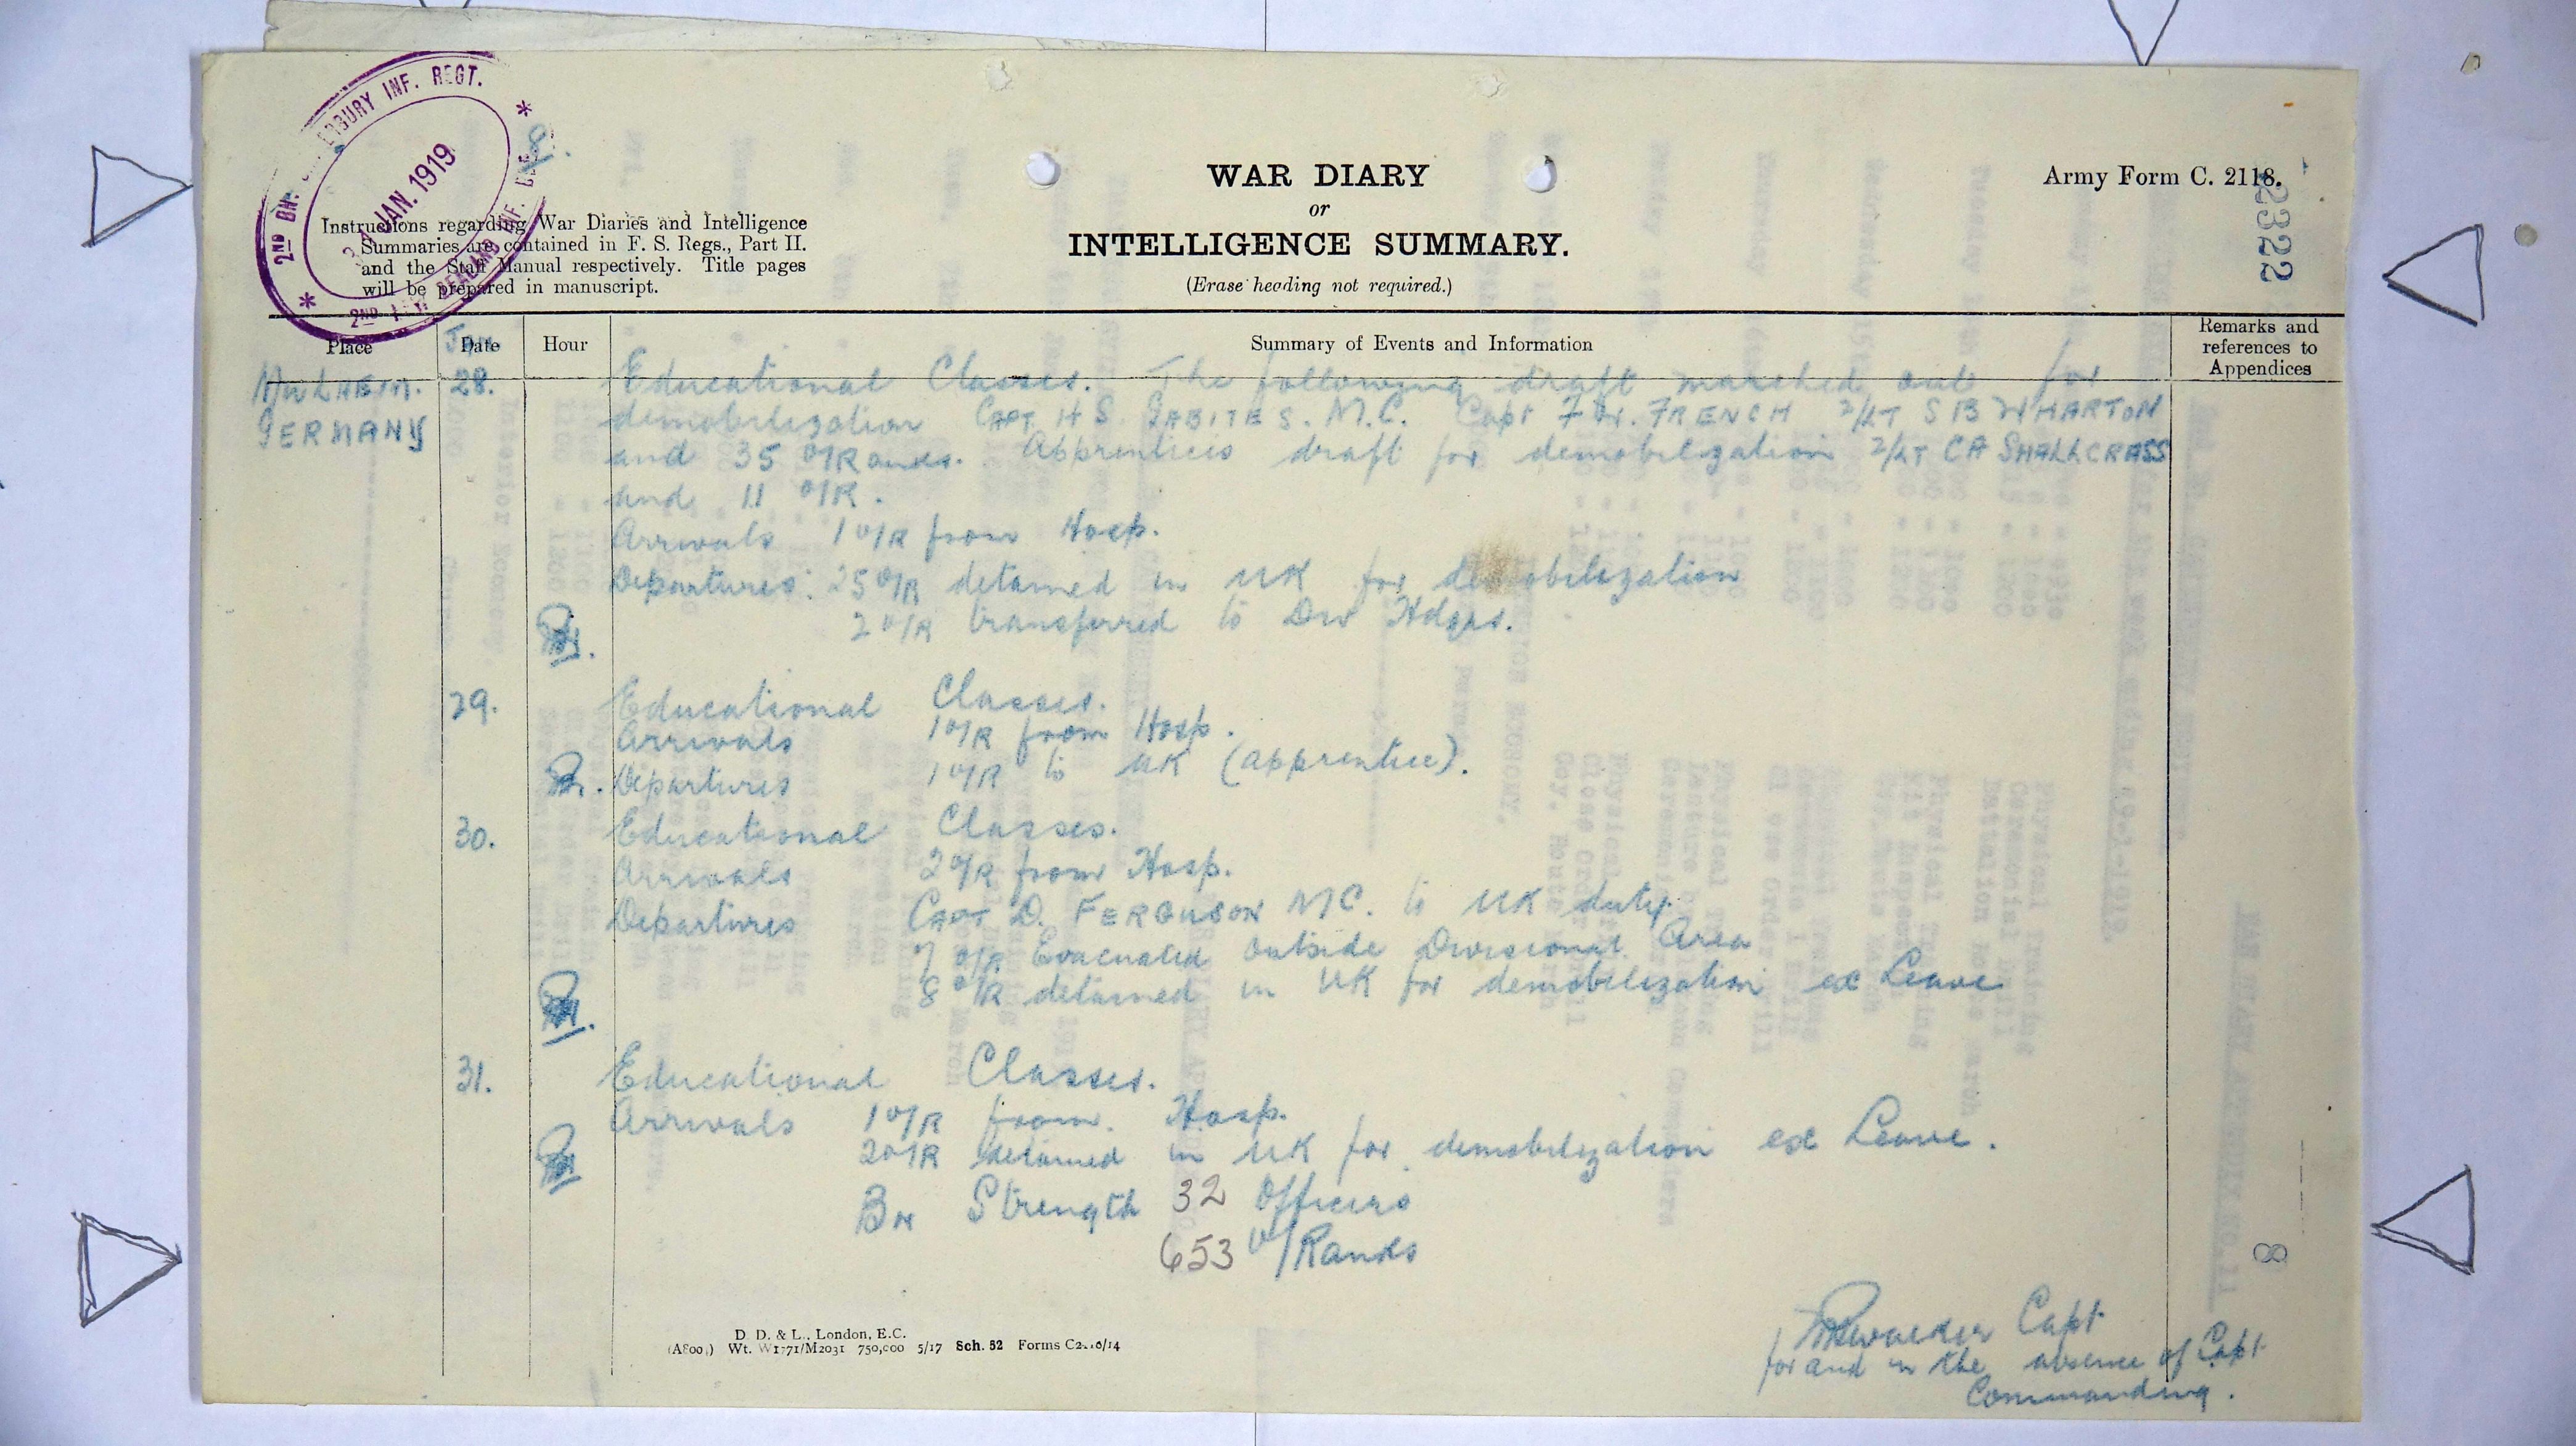 2ND BN. ERBURY INF. REGT.
JAN. 1919
2ND ZEALAND INF. BDE.
WAR DIARY
or
INTELLIGENCE SUMMARY.
(Erase heading not required.)
Army Form C. 2118.
2322
Instructions regarding War Diaries and Intelligence
Summaries are contained in F. S. Regs., Part II.
and the Staff Manual respectively. Title pages
will be prepared in manuscript.
Place Date Hour Summary of Events and Information Remarks and references to Appendices
Jan.
MULHEIM. 28. Educational Classes. The following draft marched out for
GERMANY demobilization CAPT H S. GABITES. M.C. Capt F W. FRENCH 2/LT S B WHARTON
and 35 O/Ranks. Apprentices draft for demobilization 2/LT CA SHALLCRASS
and 11 O/R.
Arrivals 1 O/R from Hosp.
Departures: 25 O/R detained in UK for demobilization
2 O/R transferred to Div Hdqrs.
29. Educational Classes.
Arrivals 1 O/R from Hosp.
Departures 1 O/R to UK (apprentice).
30. Educational Classes.
Arrivals 2 O/R from Hosp.
Departures CAPT D. FERGUSON MC. to UK duty.
7 O/R Evacuated outside Divisional Area
8 O/R detained in UK for demobilization ex Leave
31. Educational Classes.
Arrivals 1 O/R from. Hosp.
2 O/R detained in UK for demobilization ex Leave.
BN Strength 32 Officers
653 O/Ranks
8
Capt
for and in the absence of Capt
Commanding.
D. D. & L., London, E.C.
Wt. W1771/M2031 750,000 5/17 Sch. 52 Forms